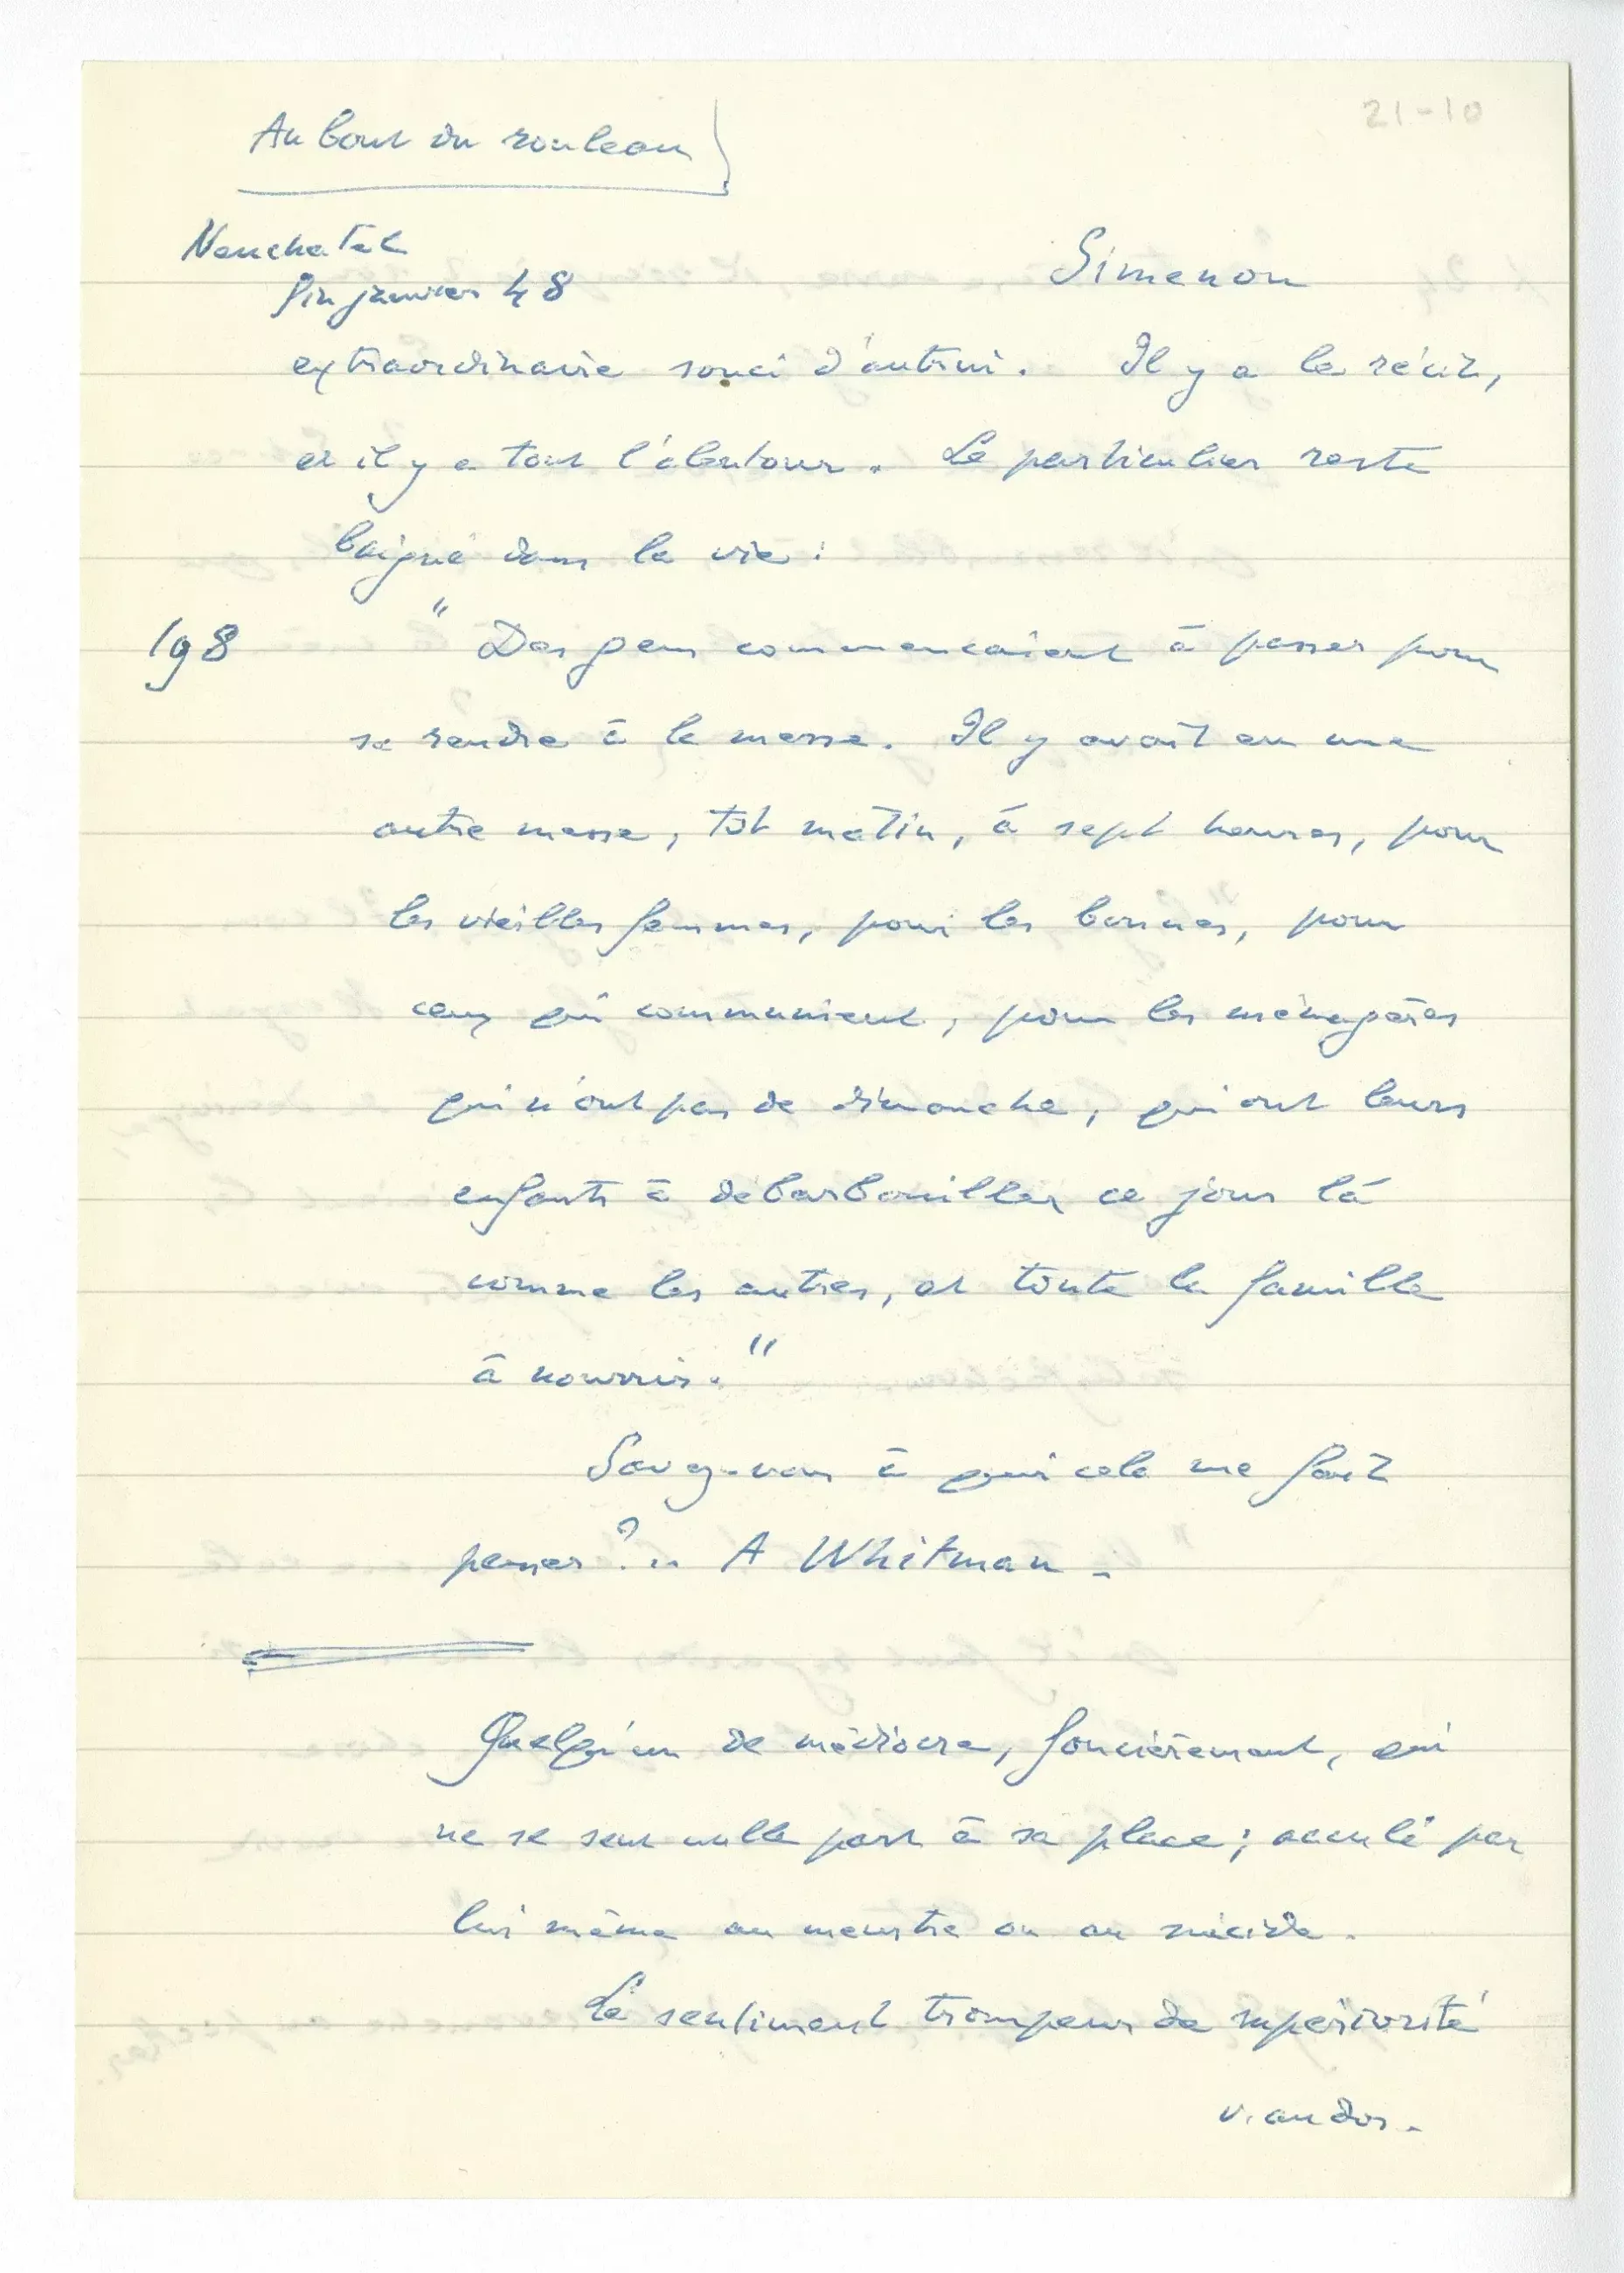 21-10
Au bout du rouleau
Neuchatel
fin janvier 48
Simenon
extraordinaire souci d'autrui. Il y a le récit,
et il y a tout l'alentour. Le particulier reste
baigné dans la vie :
198 " Des gens commencaient à passer pour
se rendre à la messe. Il y avait eu une
autre messe, tôt matin, à sept heures, pour
les vieilles femmes, pour les bonnes, pour
ceux qui communient, pour les ménagères
qui n'ont pas de dimanche, qui ont leurs
enfants à débarbouiller ce jour là
comme les autres, et toute la famille
à nourrir."
Savez-vous à qui cela me fait
penser ?.. A Whitman -
Quelqu'un de médiocre, foncièrement, qui
ne se sent nulle part à sa place ; acculé par
lui même au meurtre ou au suicide.
Le sentiment trompeur de supériorité
v. au dos.